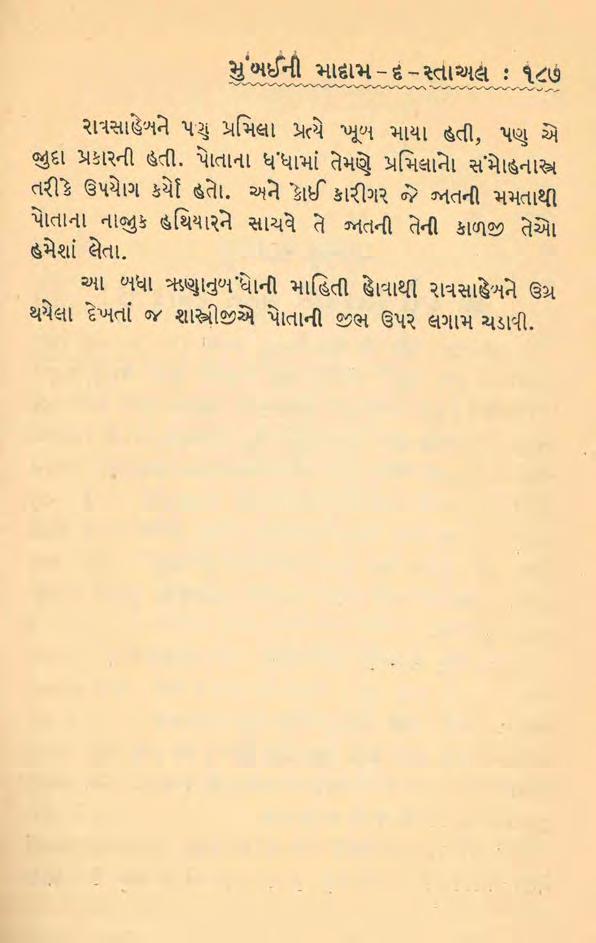 મુંબઈની માદામ - દ - સ્તાઅલ : ૧૮૭
રાવસાહેબને પણ પ્રમિલા પ્રત્યે ખૂબ માયા હતી, પણ એ
જુદા પ્રકારની હતી. પોતાના ધંધામાં તેમણે પ્રમિલાનો સંમોહનાસ્ત્ર
તરીકે ઉપયોગ કર્યો હતો. અને કોઈ કારીગર જે જાતની મમતાથી
પોતાના નાજુક હથિયારને સાચવે તે જાતની તેની કાળજી તેઓ
હમેશાં લેતા.
આ બધા ઋણાનુબંધોની માહિતી હોવાથી રાવસાહેબને ઉગ્ર
થયેલા દેખતાં જ શાસ્ત્રીજીએ પોતાની જીભ ઉપર લગામ ચડાવી.